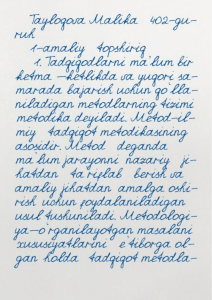 Tayloqova Malika 402-gu-
ruh
1-amaliy topshiriq
1. Tadqiqodlarni ma'lum bir
ketma-ketlikda va yuqori sa-
marada bajarish uchun qo'lla-
niladigan metodlarning tizimi
metodika deyiladi. Metod-il-
miy tadqiqot metodikasining
asosidir. Metod deganda
ma'lum jarayonni nazariy ji-
hatdan ta'riflab berish va
amaliy jihatdan amalga oshi-
rish uchun foydalaniladigan
usul tushuniladi. Metodologi-
ya-o'rganilayotgan masalani
xususiyatlarini e'tiborga ol-
gan holda tadqiqot metodla-